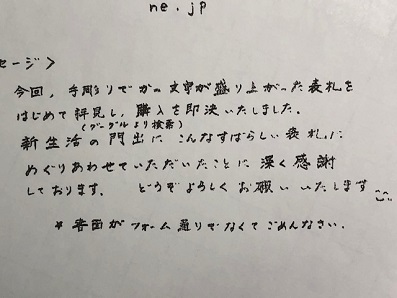 ne.jp
セージ>
今回, 手彫りでかつ文字が盛り上がった表札を
はじめて拝見し, 購入を即決いたしました.
(グーグルより検索)
新生活の門出に こんなすばらしい表札に
めぐりあわせていただいたことに 深く感謝
しております. どうぞよろしく お願い いたします
* 書面がフォーム通りでなくてごめんなさい.